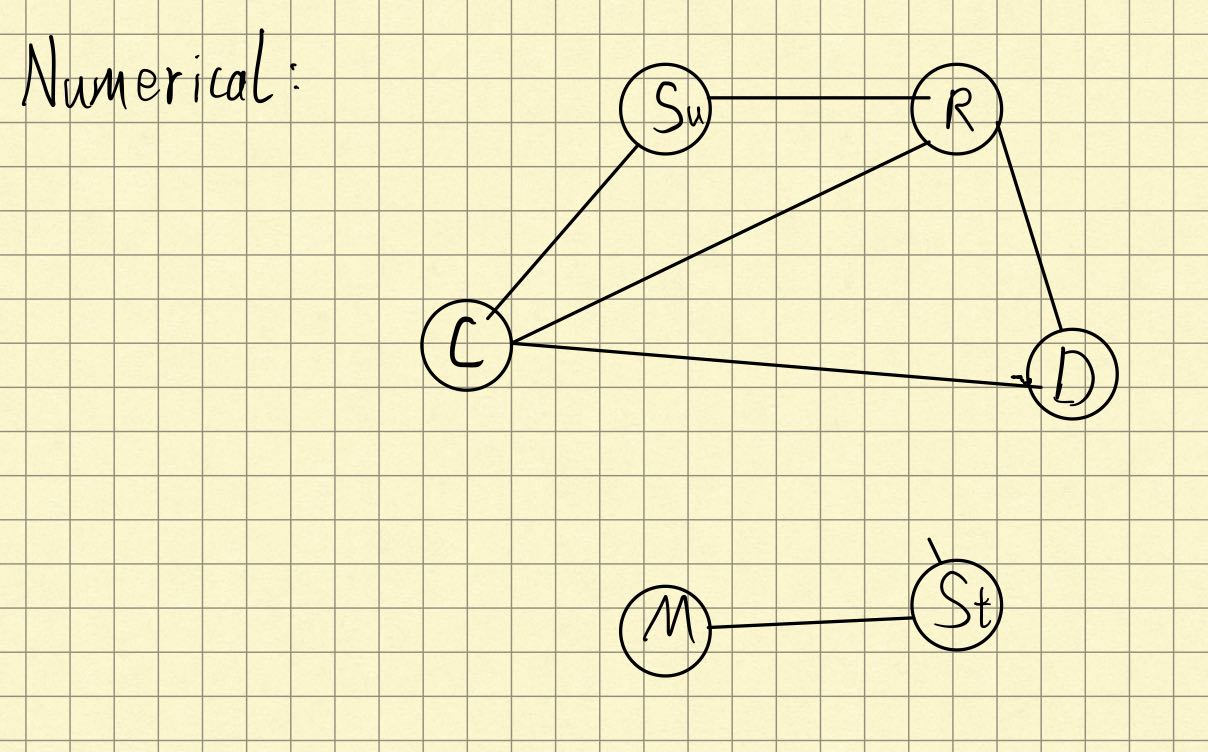 Numerical:
Su
R
C
D
St
M